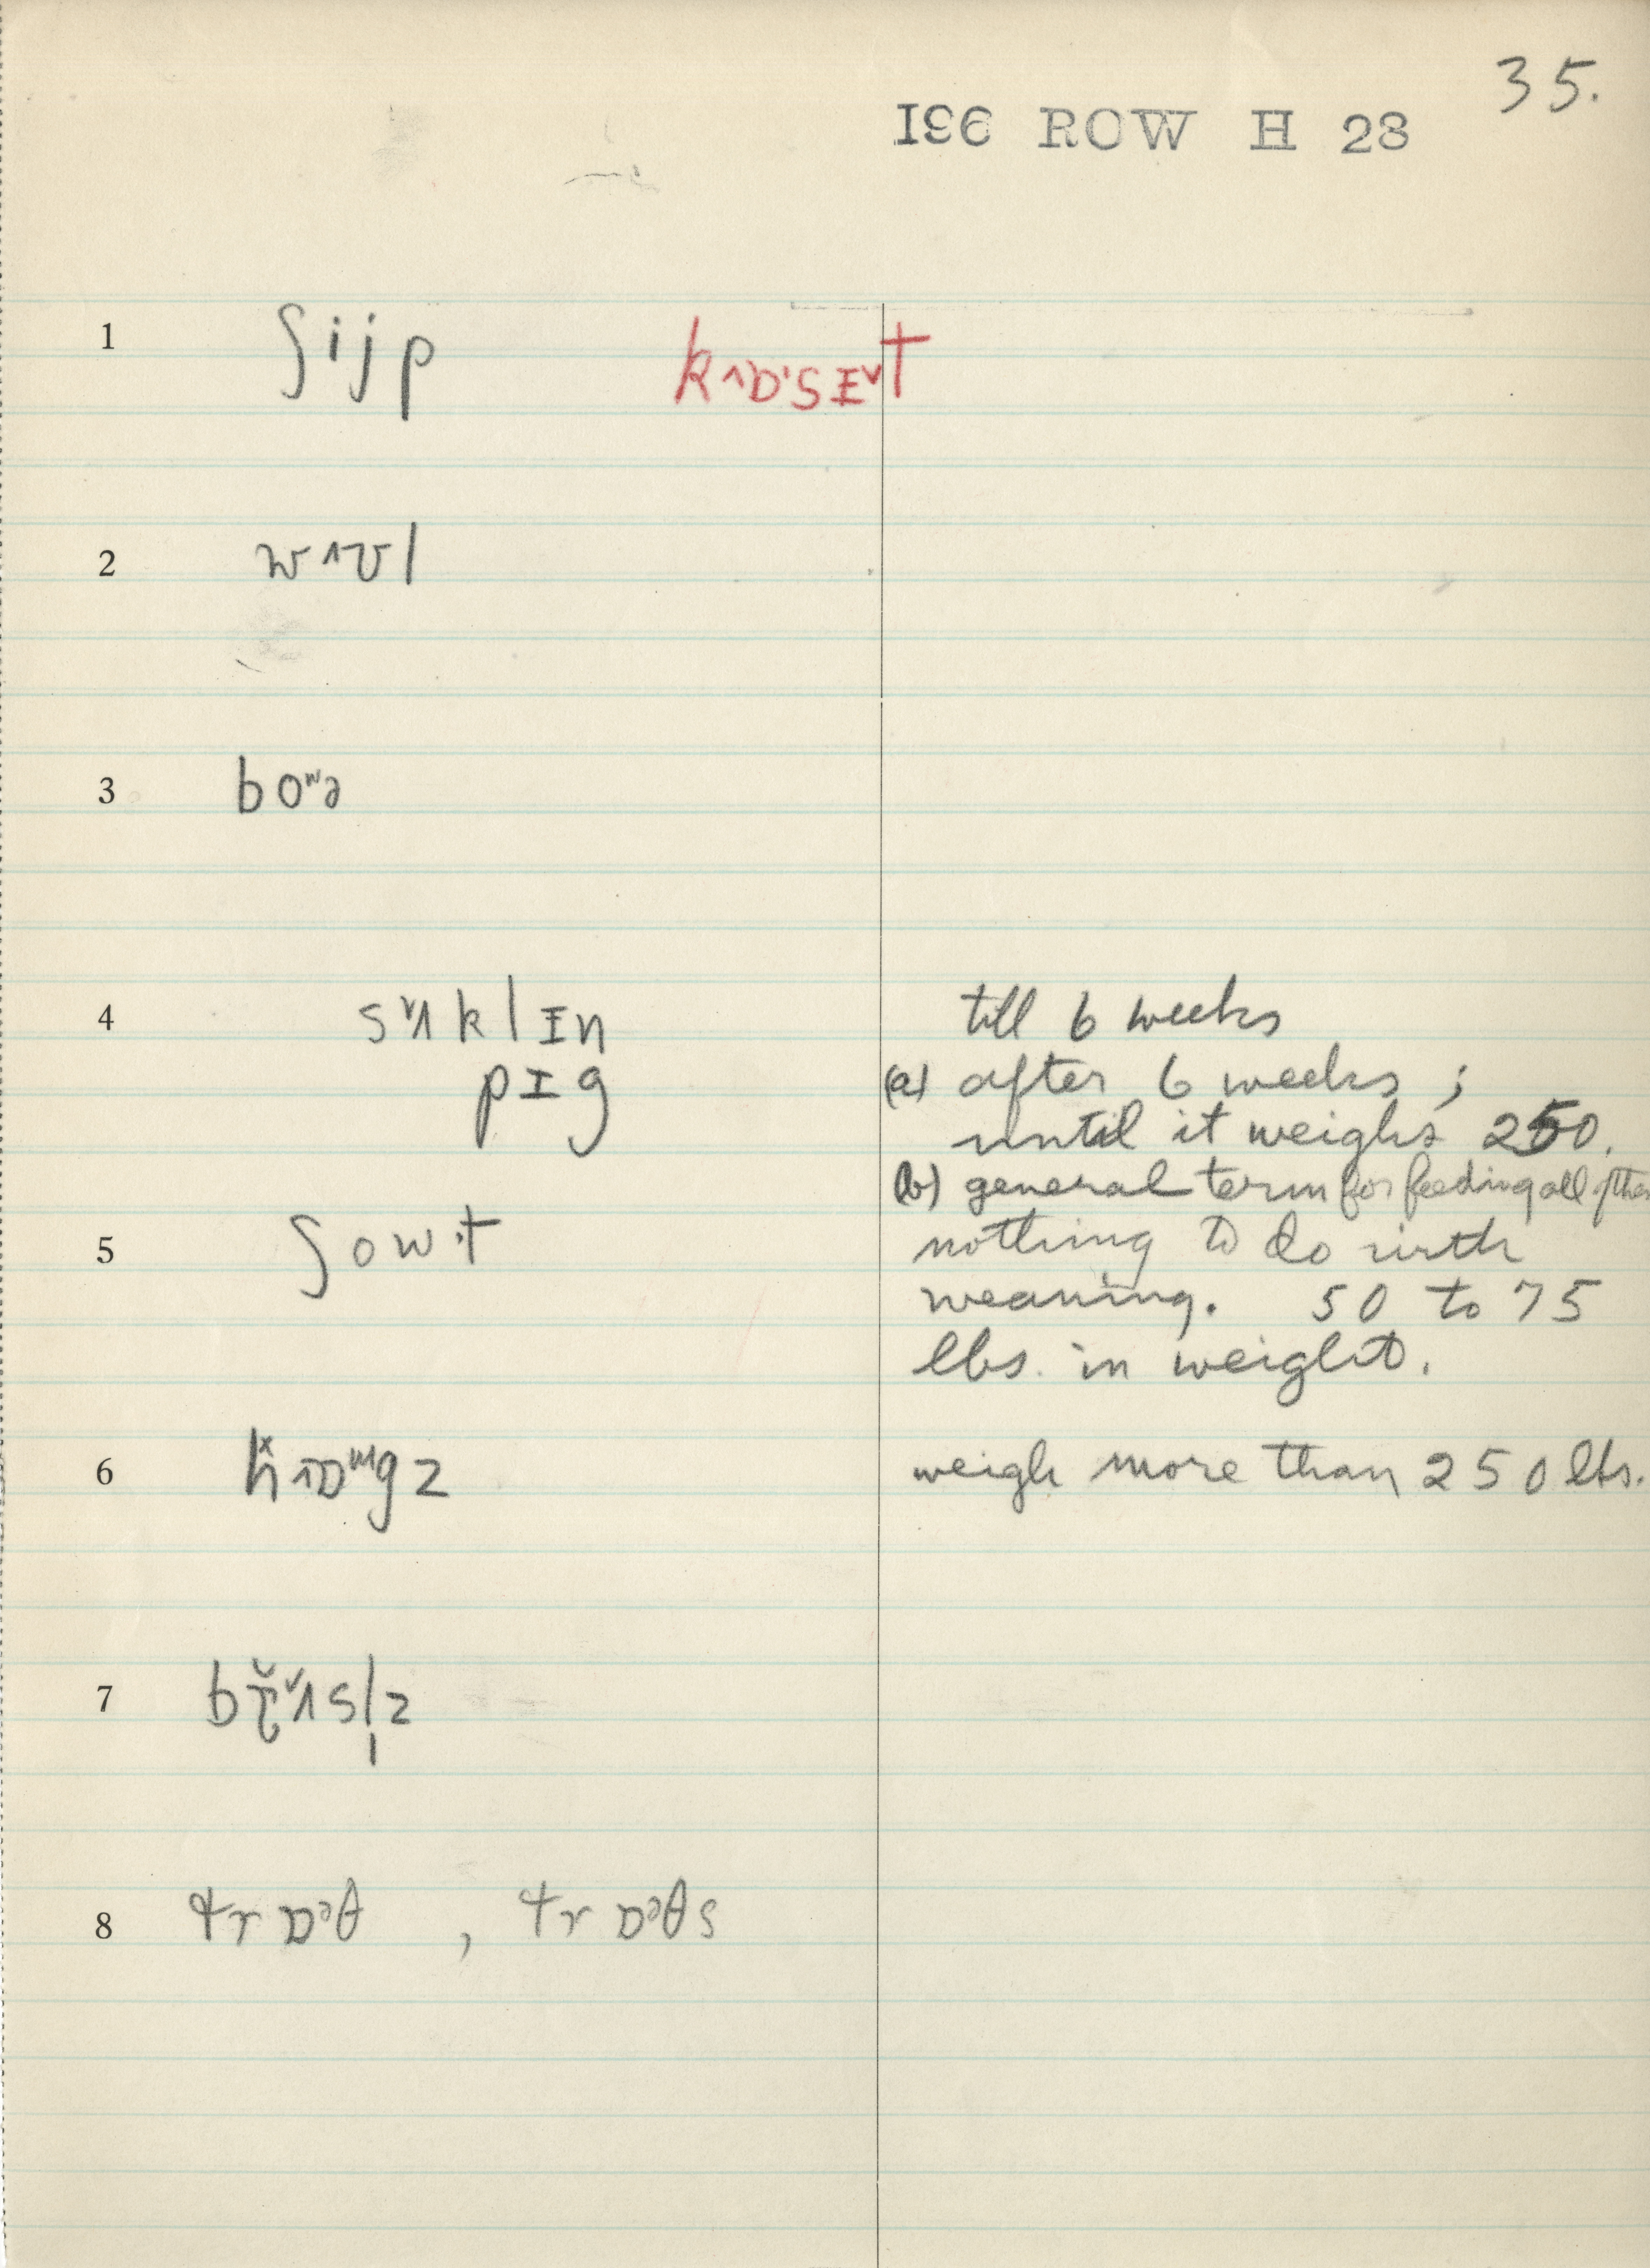 35.
196 ROW H 28
1 ʃijp kɒ˄ˑsɪ˅t
2 wʊ˄l
3 boʷə
4 sʌ˅klɪn till 6 weeks
pɪg (a) after 6 weeks ;
until it weighs 250.
(b) general term for feeding all
5 ʃowt nothing to do with
weaning. 50 to 75
lbs. in weight.
6 hɒ˄ʷgz weigh more than 250 lbs.
7 bɾʌ˅sl̩z
8 trɒᵊθ , trɒᵊθs